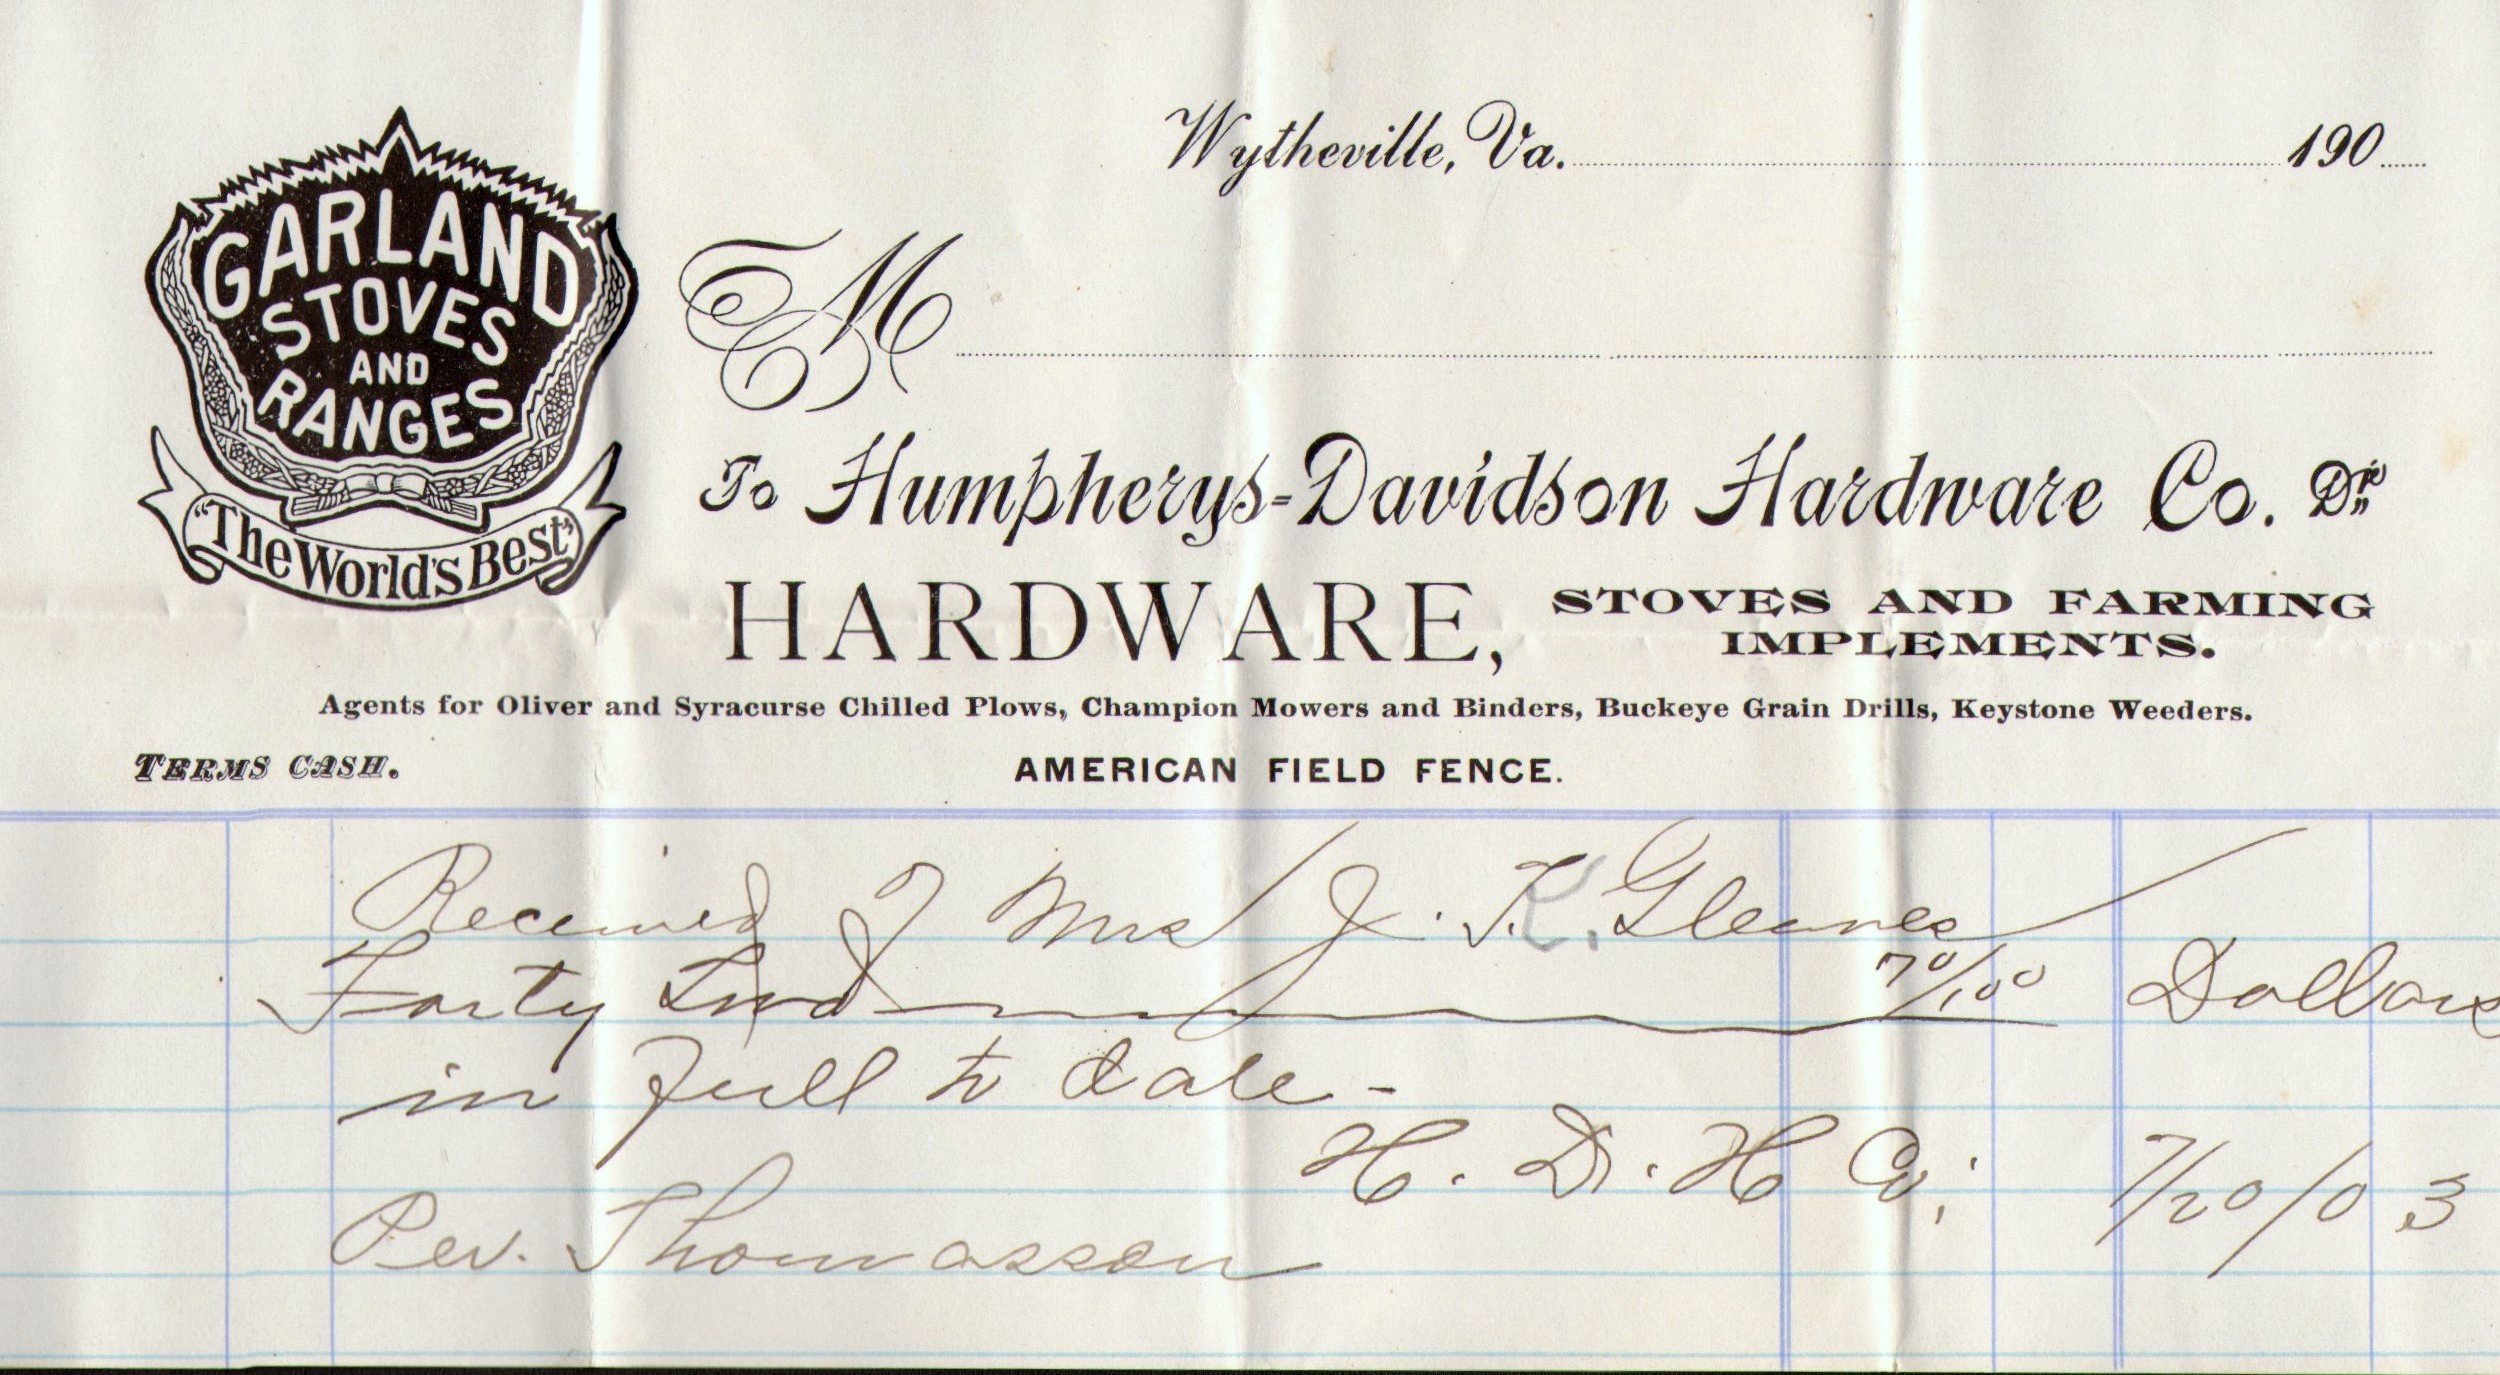 GARLAND
STOVES
AND
RANGES
"The World's Best"
Wytheville, Va. 190
M
To Humpherys-Davidson Hardware Co. Dr.
HARDWARE, STOVES AND FARMING
IMPLEMENTS.
Agents for Oliver and Syracurse Chilled Plows, Champion Mowers and Binders, Buckeye Grain Drills, Keystone Weeders.
TERMS CASH. AMERICAN FIELD FENCE.
Received of Mrs J. K. Gleaves
Forty Two 70/100 Dollars
in full to date -
H. D. H Co; 7/20/03
Per. Thomasson